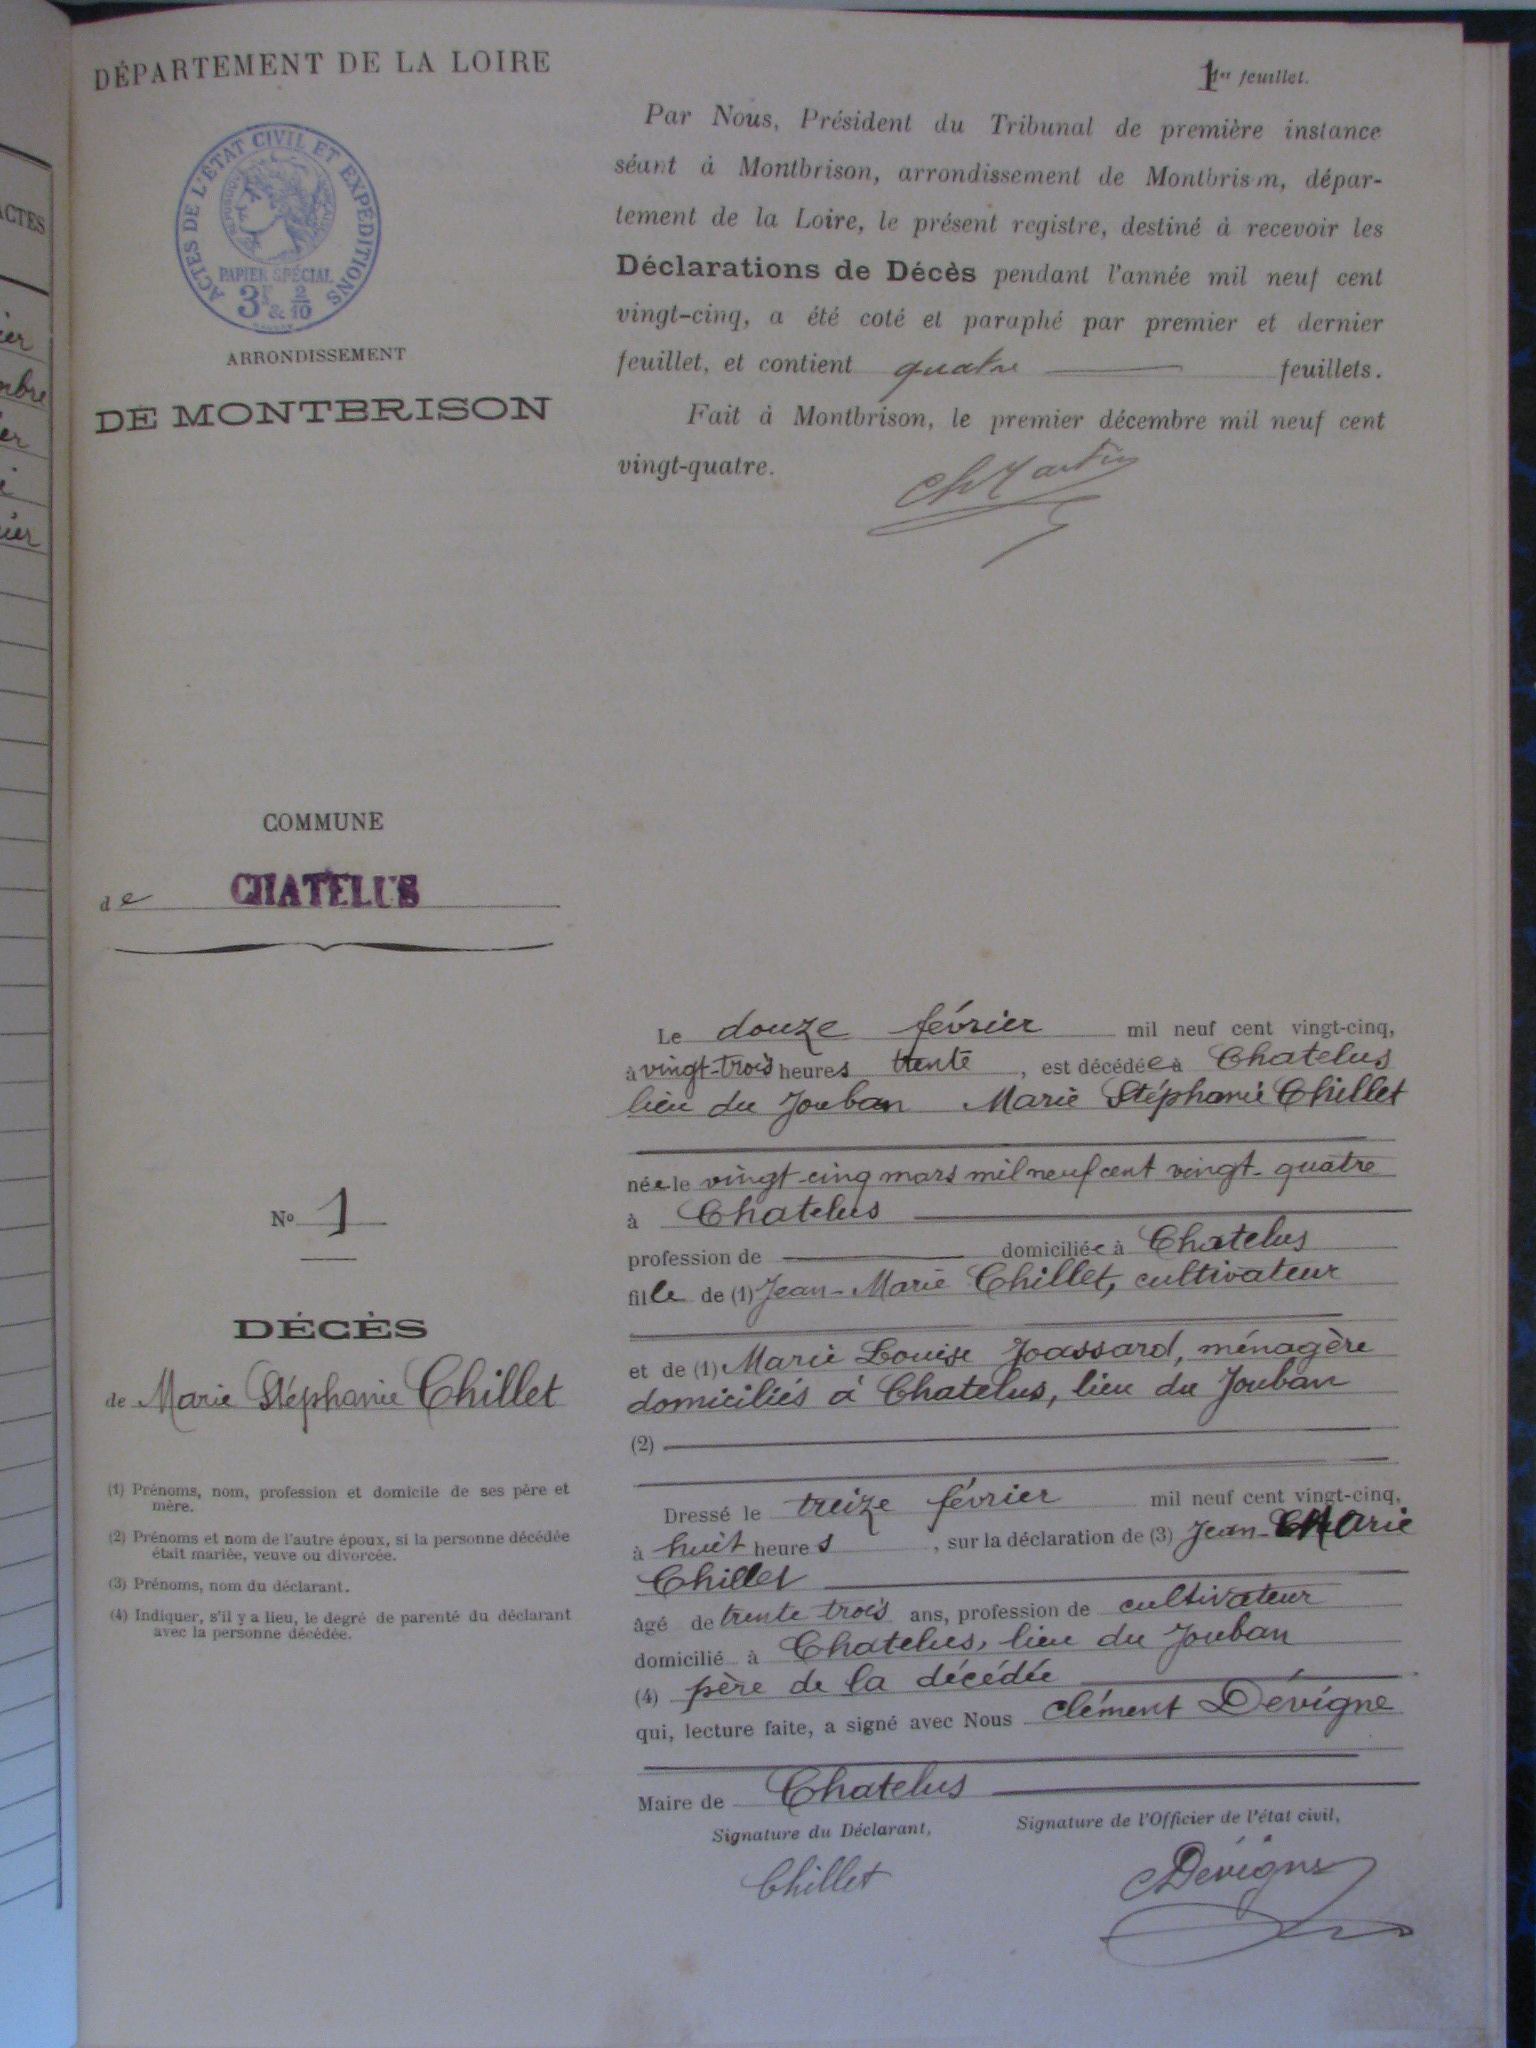 DÉPARTEMENT DE LA LOIRE
ACTES DE L'ÉTAT CIVIL ET EXPÉDITIONS
RÉPUBLIQUE FRANÇAISE
PAPIER SPÉCIAL
3F & 2/10
ARRONDISSEMENT
DE MONTBRISON
1er feuillet.
Par Nous, Président du Tribunal de première instance
séant à Montbrison, arrondissement de Montbrison, dépar-
tement de la Loire, le présent registre, destiné à recevoir les
Déclarations de Décès pendant l'année mil neuf cent
vingt-cinq, a été coté et paraphé par premier et dernier
feuillet, et contient quatre feuillets.
Fait à Montbrison, le premier décembre mil neuf cent
vingt-quatre.
COMMUNE
de CHATELUS
No 1
DÉCÈS
de Marie Stéphanie Chillet
(1) Prénoms, nom, profession et domicile de ses père et
mère.
(2) Prénoms et nom de l'autre époux, si la personne décédée
était mariée, veuve ou divorcée.
(3) Prénoms, nom du déclarant.
(4) Indiquer, s'il y a lieu, le degré de parenté du déclarant
avec la personne décédée.
Le douze février mil neuf cent vingt-cinq,
à vingt-trois heures trente, est décédée à Chatelus
lieu du Jouban Marie Stéphanie Chillet
née le vingt-cinq mars mil neuf cent vingt-quatre
à Chatelus
profession de domiciliée à Chatelus
fille de (1) Jean-Marie Chillet, cultivateur
et de (1) Marie Louise Joassard, ménagère
domiciliés à Chatelus, lieu du Jouban
(2)
Dressé le treize février mil neuf cent vingt-cinq,
à huit heures, sur la déclaration de (3) Jean-Marie
Chillet
âgé de trente trois ans, profession de cultivateur
domicilié à Chatelus, lieu du Jouban
(4) père de la décédée
qui, lecture faite, a signé avec Nous Clément Dévigne
Maire de Chatelus
Signature du Déclarant, Signature de l'Officier de l'état civil,
Chillet Dévigne
ACTES